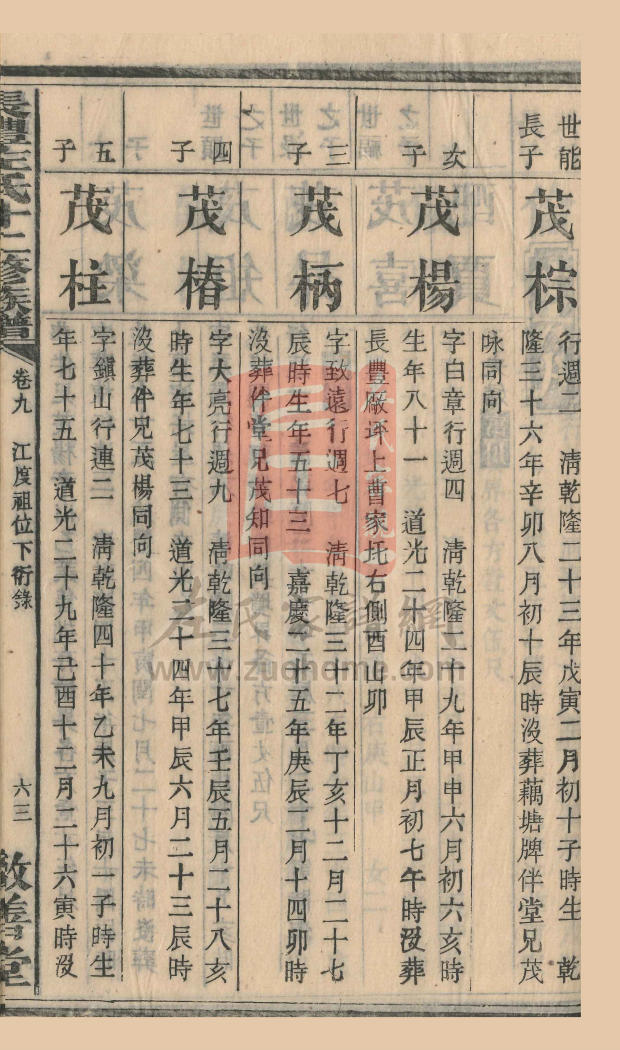 世能
長子
茂棕
行週二　淸乾隆二十三年戊寅二月初十子時生　乾
隆三十六年辛卯八月初十辰時沒葬藕塘牌伴堂兄茂
咏同向
次
子
茂楊
字白章行週四　淸乾隆二十九年甲申六月初六亥時
生年八十一　道光二十四年甲辰正月初七午時沒葬
長豐廠坪上曹家圫右側酉山卯
三
子
茂柄
字致遠行週七　淸乾隆三十二年丁亥十二月二十七
辰時生年五十三　嘉慶二十五年庚辰二月十四卯時
沒葬伴堂兄茂知同向
四
子
茂椿
字大亮行週九　淸乾隆三十七年壬辰五月二十八亥
時生年七十三　道光二十四年甲辰六月二十三辰時
沒葬伴兄茂楊同向
五
子
茂柱
字鎭山行連二　淸乾隆四十年乙未九月初一子時生
年七十五　道光二十九年己酉十二月二十六寅時沒
長豐左氏十二修族譜
卷九　江度祖位下衍錄
六三
敦善堂
左氏家譜網
www.zuohome.com